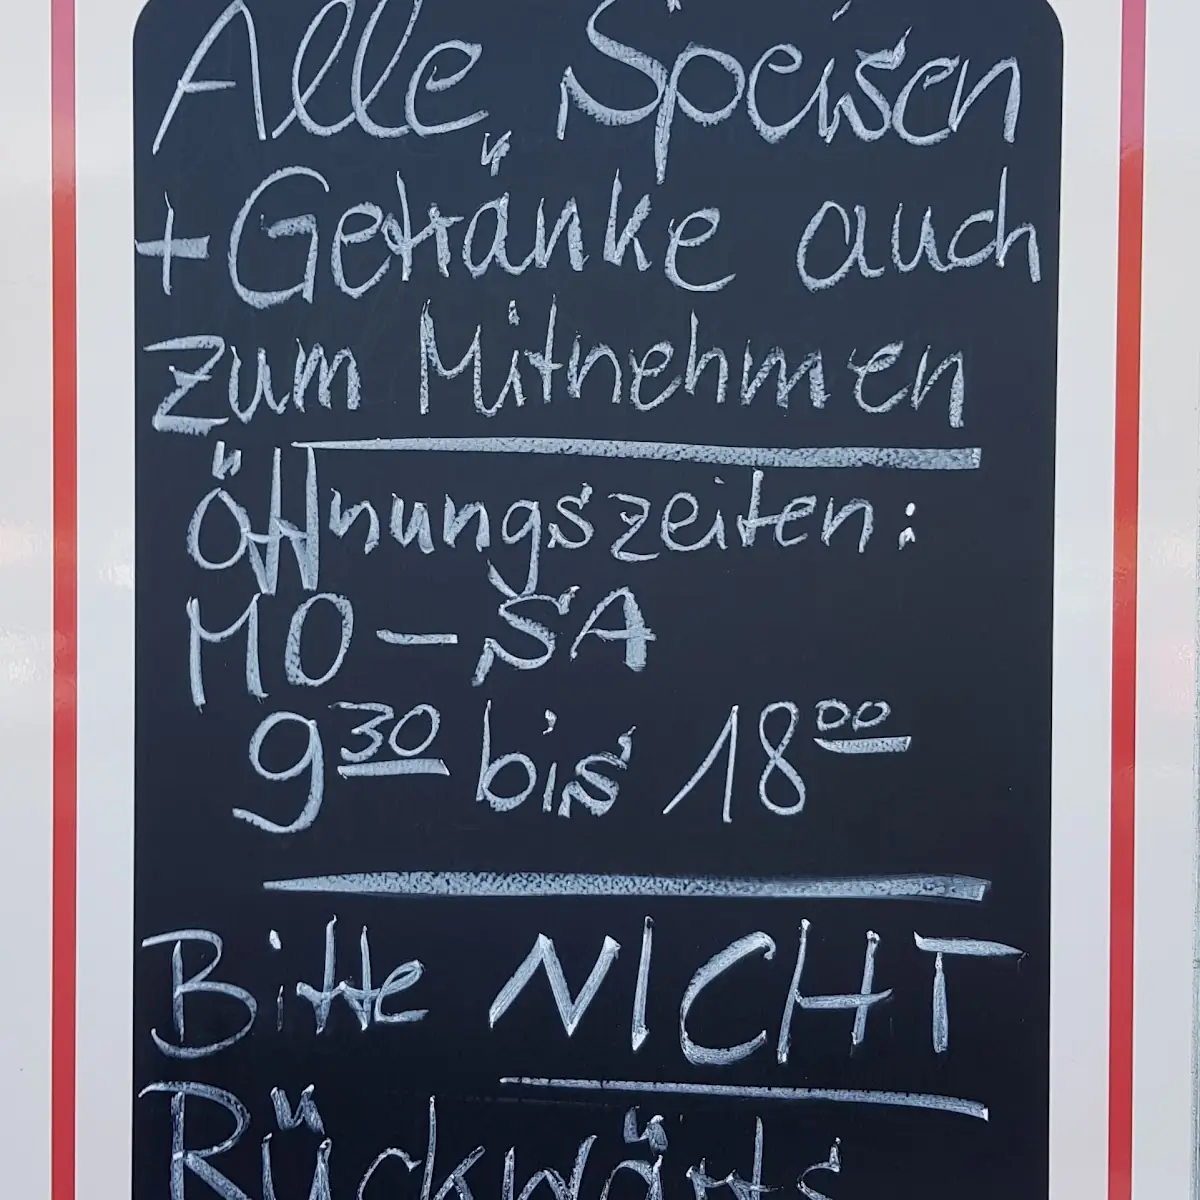 Alle Speisen
+ Getränke auch
zum Mitnehmen
Öffnungszeiten:
MO - SA
9 30 bis 18 00
Bitte NICHT
Rückwärts